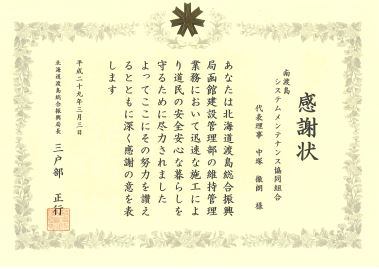 感謝状
南渡島
システムメンテナンス協同組合
代表理事 中塚 徹朗 様
あなたは北海道渡島総合振興
局函館建設管理部の維持管理
業務において迅速な施工によ
り道民の安全安心な暮らしを
守るために尽力されました
よってここにその努力を讃え
るとともに深く感謝の意を表
します
平成二十九年三月三日
北海道渡島総合振興局長 三戸部 正行